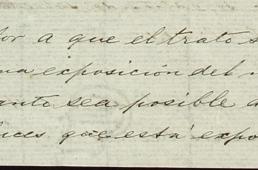 or a que el trato s
na exposición del
anto sea posible a
ces que está expo